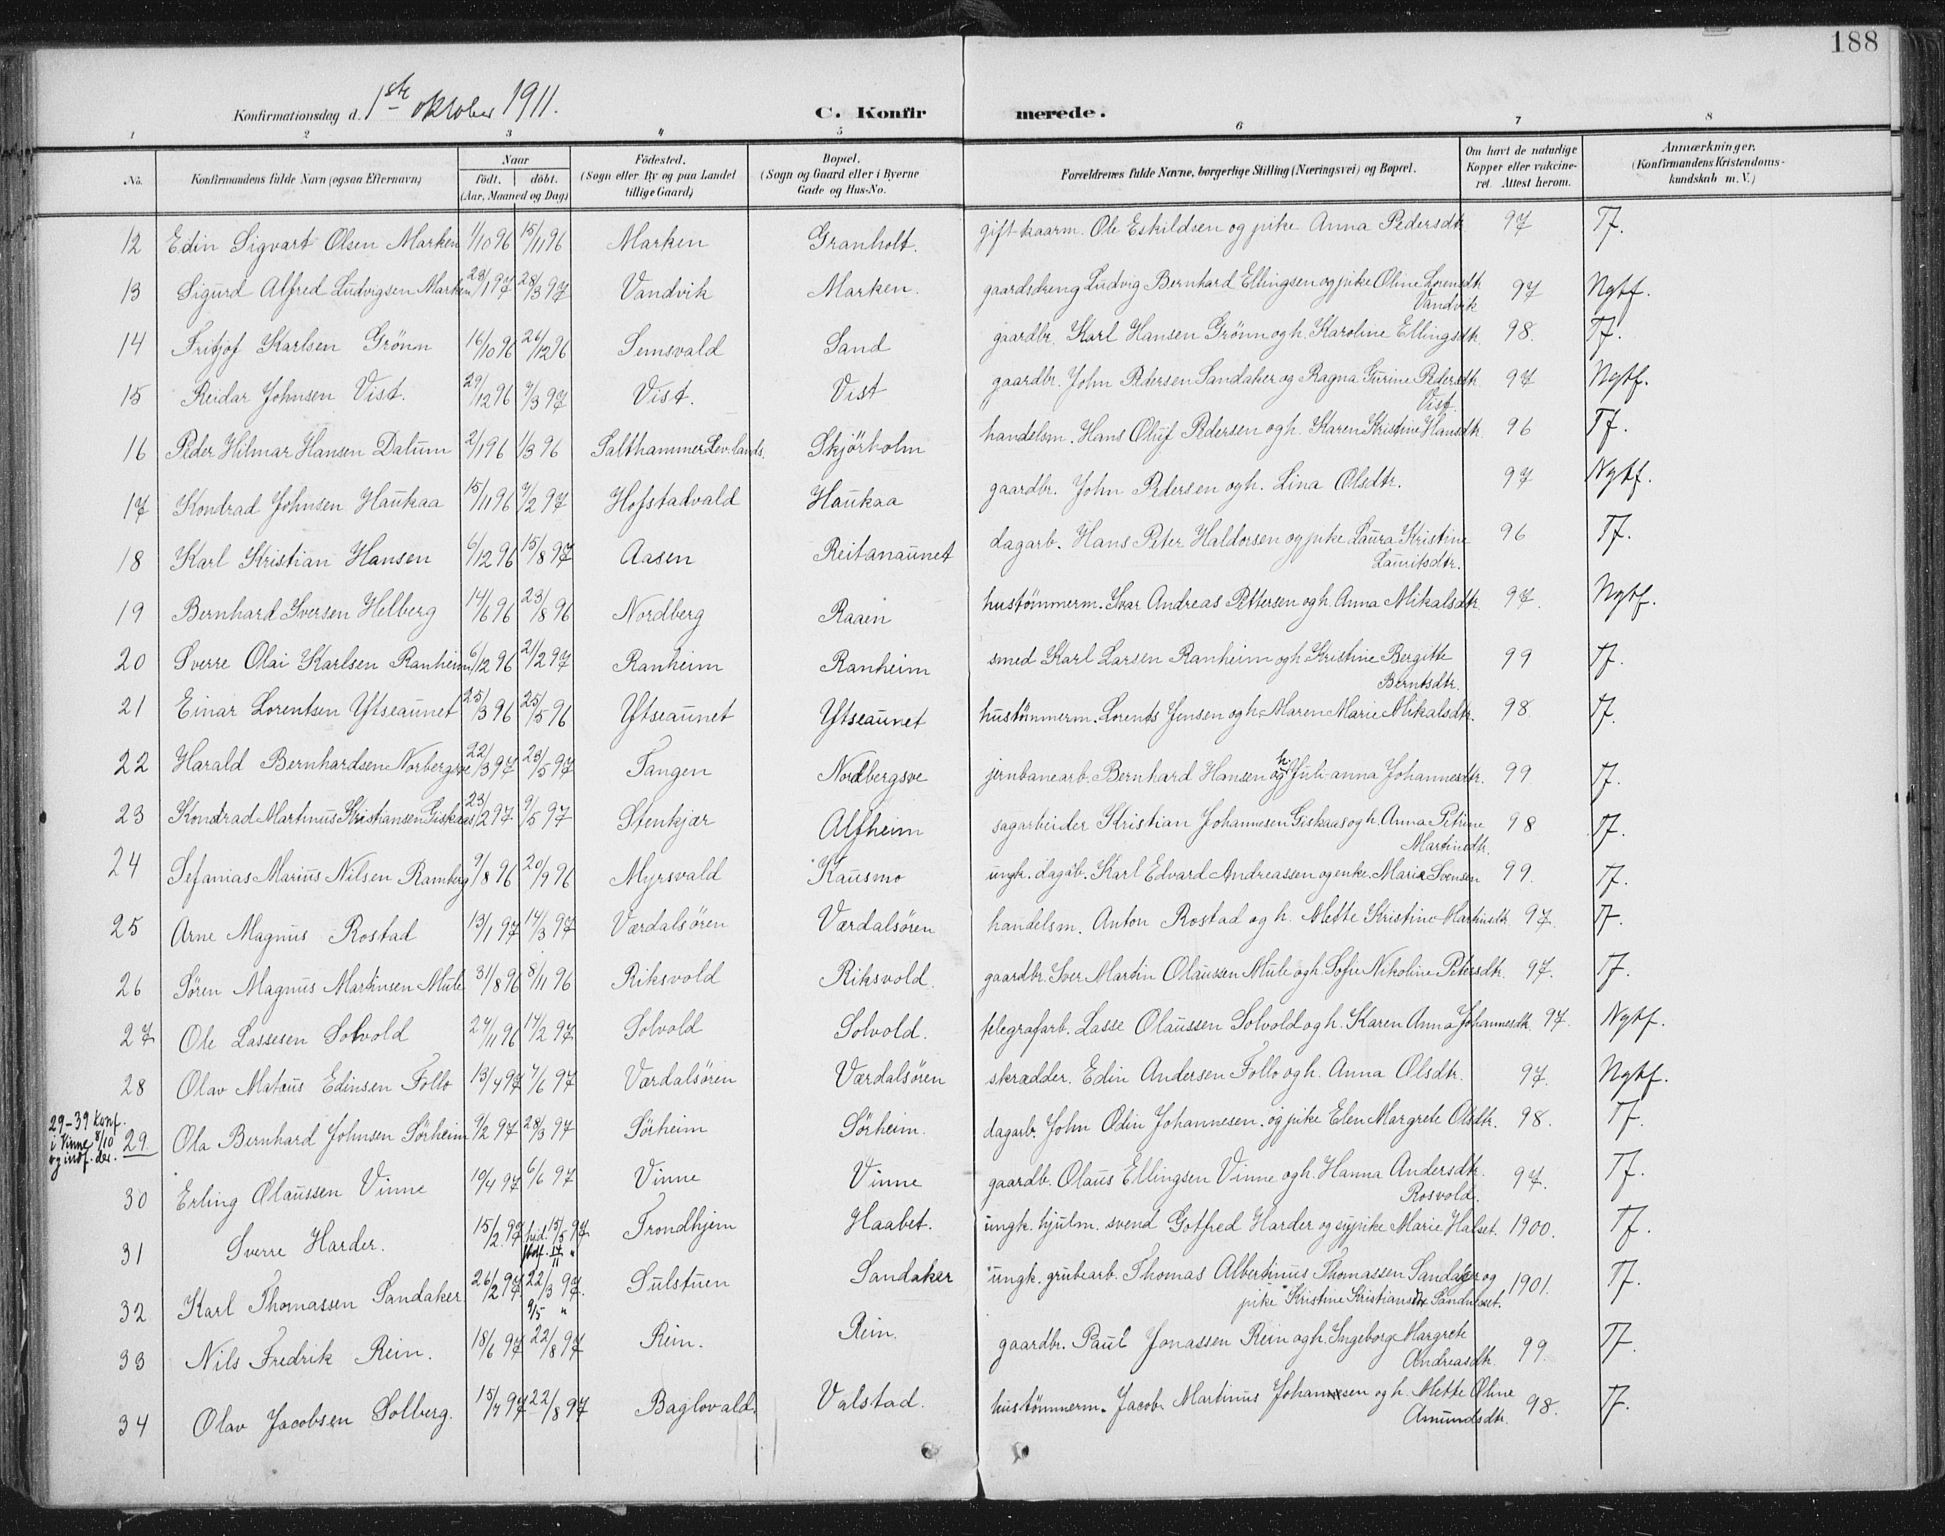 188
Konfirmationsdag d. 1ste oktober 1911. C. Konfirmerede.
1 2 3 4 5 6 7 8
No. Konfirmandens fulde Navn (ogsaa Efternavn) Naar födt. döbt. (Aar, Maaned og Dag) Födested. (Sogn eller By og paa Landet tillige Gaard) Bopæl. (Sogn og Gaard eller i Byerne Gade og Hus-No. Forældrenes fulde Navne, borgerlige Stilling (Næringsvei) og Bopæl. Om havt de naturlige Kopper eller vakcineret. Attest herom. Anmærkninger. (Konfirmandens Kristendomskundskab m. V.)
12 Edin Sigvart Olsen Marken 1/10 96 15/11 96 Marken Granholt. gift kaarm. Ole Eskildsen og pike Anna Pedersdtr 97 Tf.
13 Sigurd Alfred Ludvigsen Marken 23/1 97 28/3 97 Vandvik Marken. gaardsdreng Ludvig Bernhard Ellingsen og pike Oline Lorensdtr Vandvik 97 Ngtf.
14 Fritjof Karlsen Grönn 16/10 96 26/12 96 Semsvald Sand gaardbr. Karl Hansen Grönn og h. Karoline Ellingsdtr. 98. Tf.
15 Reidar Johnsen Vist. 29/12 96 7/3 97 Vist. Vist gaardbr. John Pedersen Sandaker og Ragna Gurine Pedersdtr. Vist 97 Ngtf.
16 Peder Hilmar Hansen Dalum 2/1 96 1/3 96 Salthammer Lev.lands. Skjörholm handelsm. Hans Oluf Pedersen og h. Karen Kristine Hansdtr 96 Tf.
17 Kondrad Johnsen Haukaa 15/11 96 7/2 97 Hofstadvald Haukaa gaardbr. John Pedersen og h. Lina Olsdtr. 97 Ngtf.
18 Karl Kristian Hansen 6/12 96 15/8 97 Aasen Reitanaunet dagarb. Hans Peter Haldorsen og pike Laura Kristine Lauritsdtr. 96 Tf.
19 Bernhard Iversen Helberg 14/6 96 23/8 96 Nordberg Raaen hustömmerm. Ivar Andreas Pettersen og h. Anna Mikalsdtr 97. Ngtf.
20 Sverre Olai Karlsen Ranheim 6/12 96 21/2 97 Ranheim Ranheim smed Karl Larsen Ranheim og h. Kristine Bergitte Berntsdtr. 99 Tf.
21 Einar Lorentsen Ytseaunet 25/3 96 25/5 96 Ytseaunet Ytseaunet hustömmerm. Lorents Jensen og h. Maren Marie Mikalsdtr. 98. Tf.
22 Harald Bernhardsen Norbergsve 22/3 97 23/5 97 Tangen Nordbergsve jernbanearb. Bernhard Hansen og h. Juli-anna Johannesdtr. 99 Tf.
23 Kondrad Martinus Kristiansen Giskaas 23/2 97 9/5 97 Stenkjær Alfheim sagarbeider Kristian Johannesen Giskaas og h. Anna Petrine Martinsdtr. 98 Tf.
24 Sefanias Marius Nilsen Ramberg 9/8 96 20/9 96 Myrsvald Kausmo ungk. dagab. Karl Edvard Andreassen og enke Maria Svensen 99. Tf.
25 Arne Magnus Rostad 13/1 97 14/3 97 Værdalsören Værdalsören handelsm. Anton Rostad og h. Mette Kristine Martinsdtr 97. Tf.
26 Sören Magnus Martinsen Mule 31/8 96 8/11 96 Riksvold Riksvold. gaardbr. Iver Martin Olaussen Mule og h. Sofie Nikoline Petersdtr. 97. Tf.
27 Ole Lassesen Solvold 27/11 96 14/2 97 Solvold Solvold. telegrafarb. Lasse Olaussen Solvold og h. Karen Anna Johannesdtr 97. Ngtf.
28 Olav Mateus Edinsen Follo 13/4 97 7/6 97 Værdalsören Værdalsören skrædder. Edin Andersen Follo og h. Anna Olsdtr. 97. Ngtf.
29-39 konf. i Vinne 8/10 og indf. der.
29. Ola Bernhard Johnsen Sörheim 7/2 97 28/3 97 Sörheim Sörheim. dagarb. John Odin Johannesen og pike Elen Margrete Olsdtr. 98. Tf.
30 Erling Olaussen Vinne 19/4 97 6/6 97 Vinne Vinne gaardb. Olaus Ellingsen Vinne og h. Hanna Andersdtr. Rosvold. 97. Tf.
31 Sverre Harder. 15/2 97 hjd. 15/5 97 14/11 " Trondhjem Haabet. ungk. hjulm. svend Gotfred Harder og sypike Marie Halset. 1900. Tf.
32 Karl Thomassen Sandaker 26/2 97 22/3 97. 9/5 " Sulstuen Sandaker ungk. grubearb. Thomas Albertinus Thomassen Sandaker og pike Kristine Kristiansdtr 1901. Tf.
33 Nils Fredrik Rein. 18/6 97 22/8 97 Rein. Rein. gaardbr. Paul Jonassen Rein og h. Ingeborg Margrete Andreasdtr. 99. Tf.
34 Olav Jacobsen Solberg. 15/7 97 22/8 97 Baglovald. Valstad. hustömmerm. Jacob Martinus Johansen og h. Mette Oline Amundsdtr. 98. Tf.